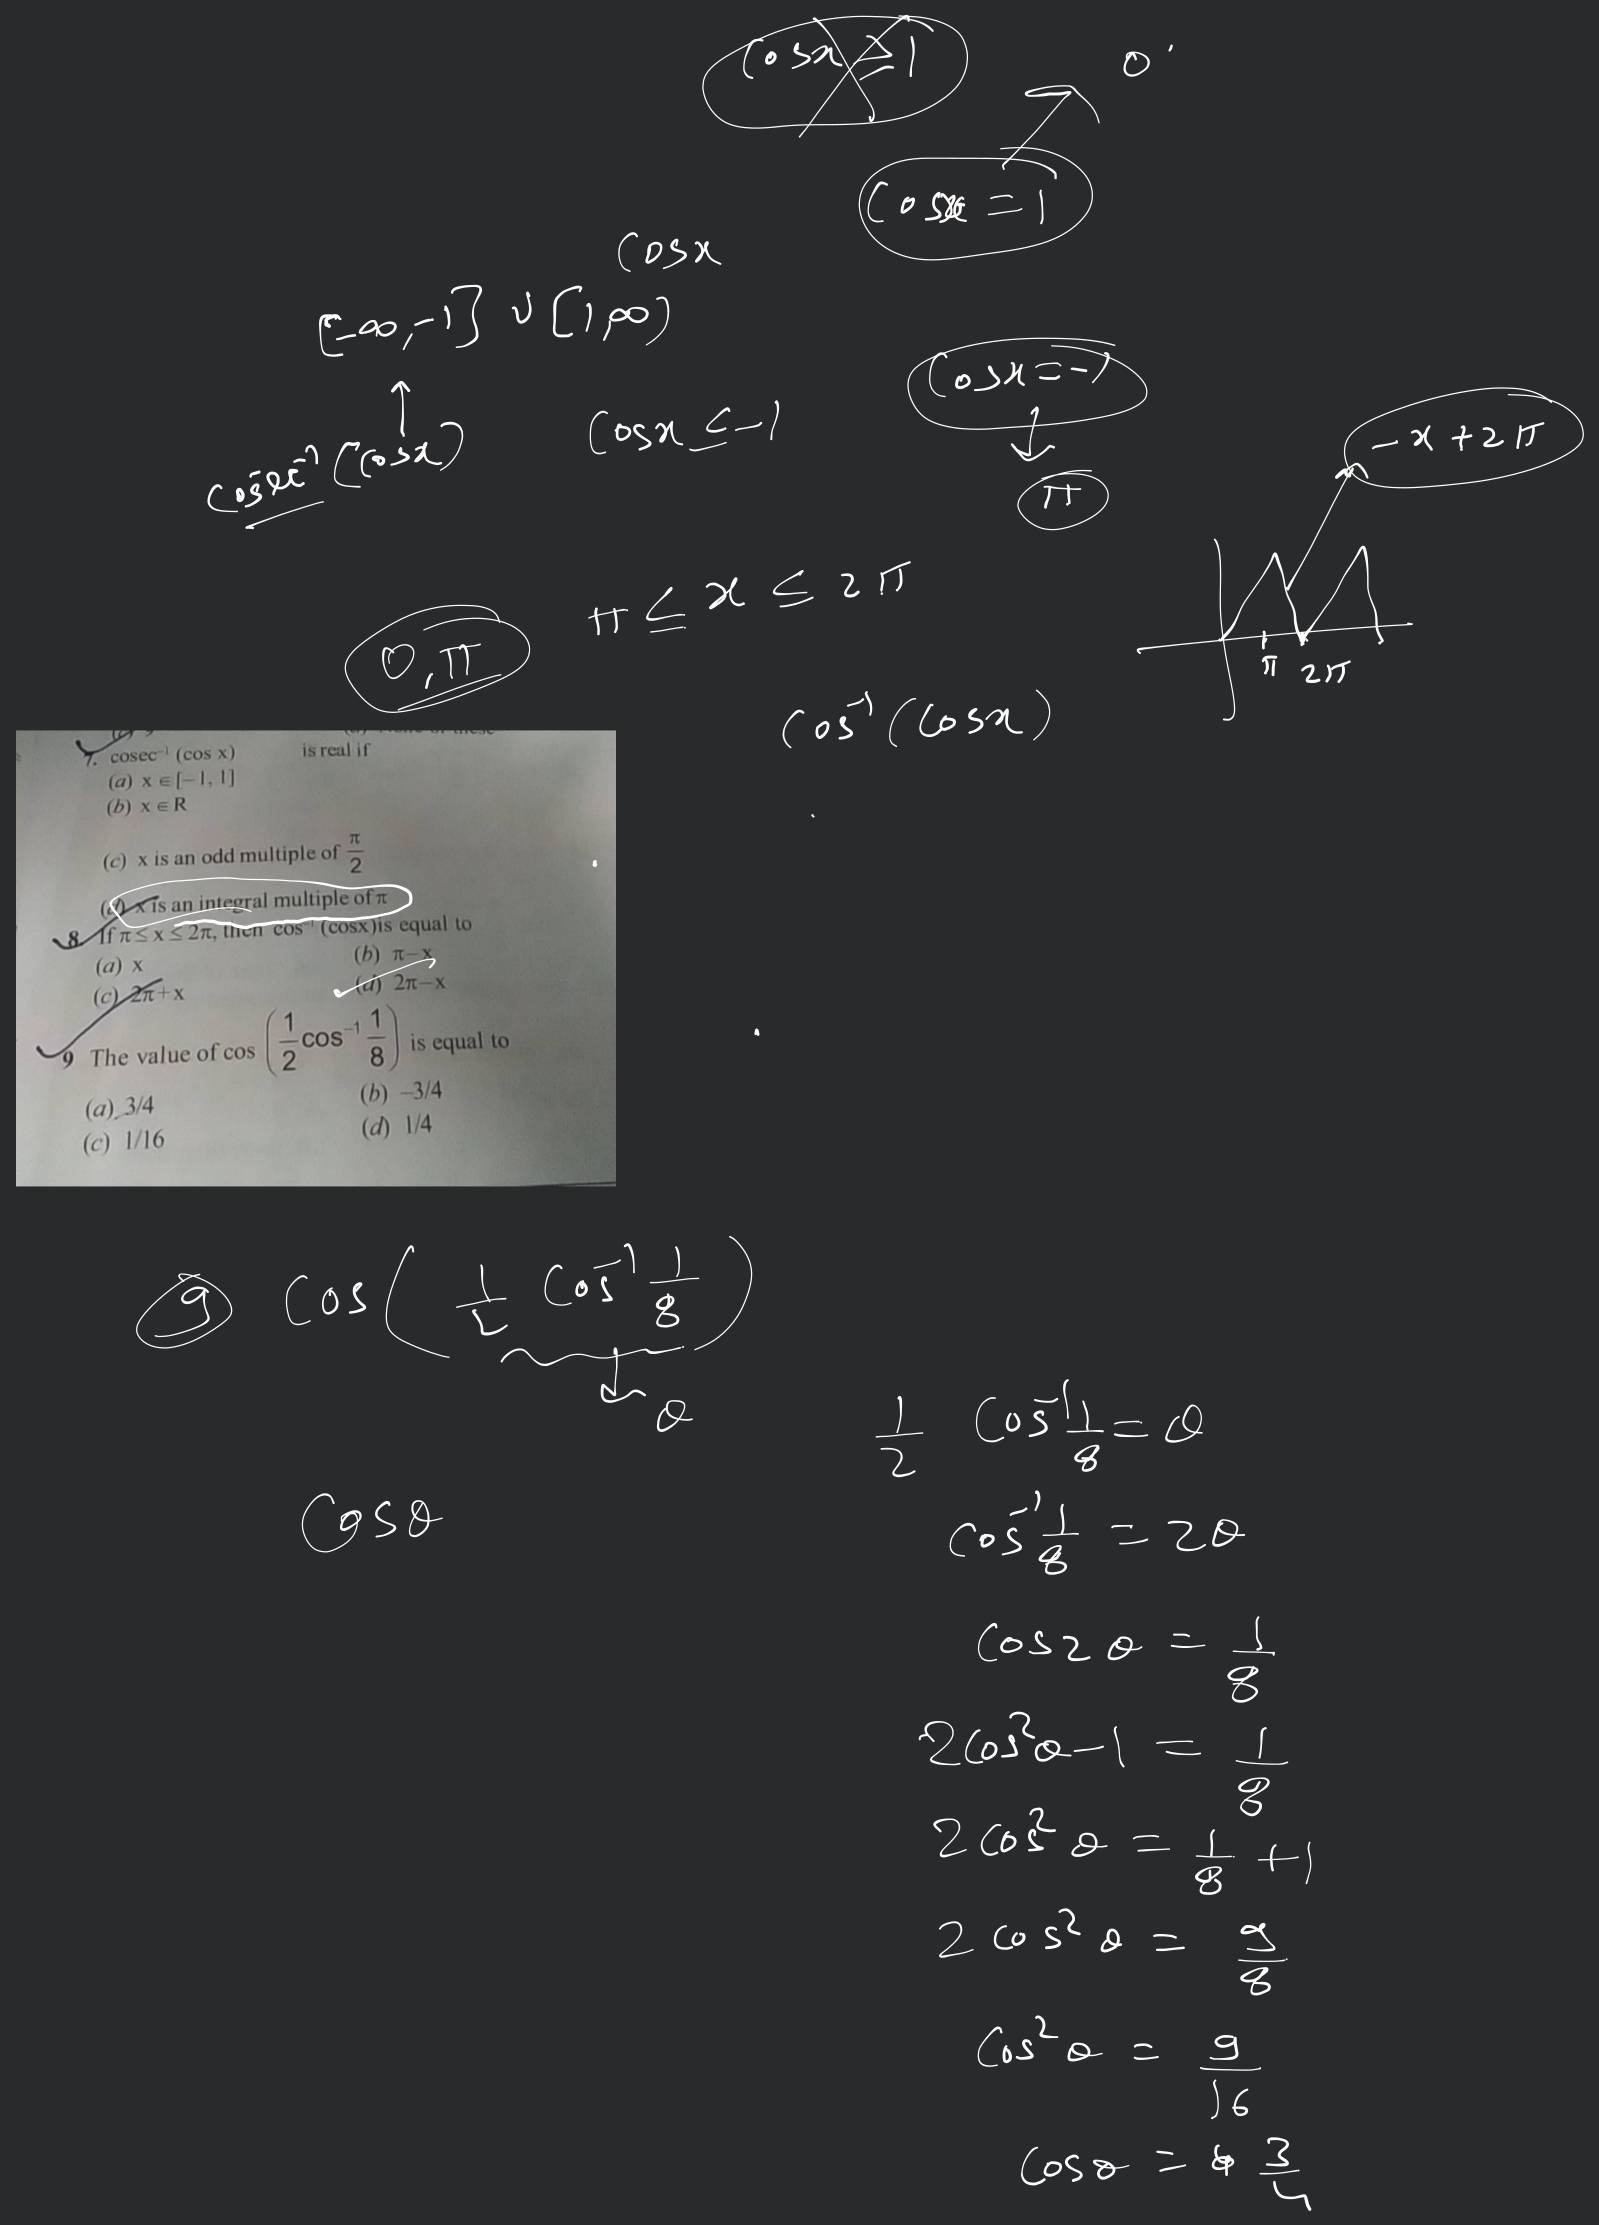 cosx ≥ 1
0
cosx = 1
cosx
[-∞,-1] ∪ [1,∞)
cosx = -1
cosec⁻¹(cosx)
cosx ≤ -1
-x + 2π
π
π ≤ x ≤ 2π
0, π
π 2π
cos⁻¹(cosx)
7. cosec⁻¹ (cos x) is real if
(a) x ∈ [–1, 1]
(b) x ∈ R
(c) x is an odd multiple of π/2
(d) x is an integral multiple of π
8. If π ≤ x ≤ 2π, then cos⁻¹ (cosx) is equal to
(a) x (b) π–x
(c) 2π+x (d) 2π–x
9 The value of cos (1/2 cos⁻¹ 1/8) is equal to
(a) 3/4 (b) –3/4
(c) 1/16 (d) 1/4
9 cos( 1/2 cos⁻¹ 1/8 )
θ
1/2 cos⁻¹ 1/8 = θ
cosθ
cos⁻¹ 1/8 = 2θ
cos2θ = 1/8
2cos²θ-1 = 1/8
2cos²θ = 1/8 + 1
2cos²θ = 9/8
cos²θ = 9/16
cosθ = 3/4